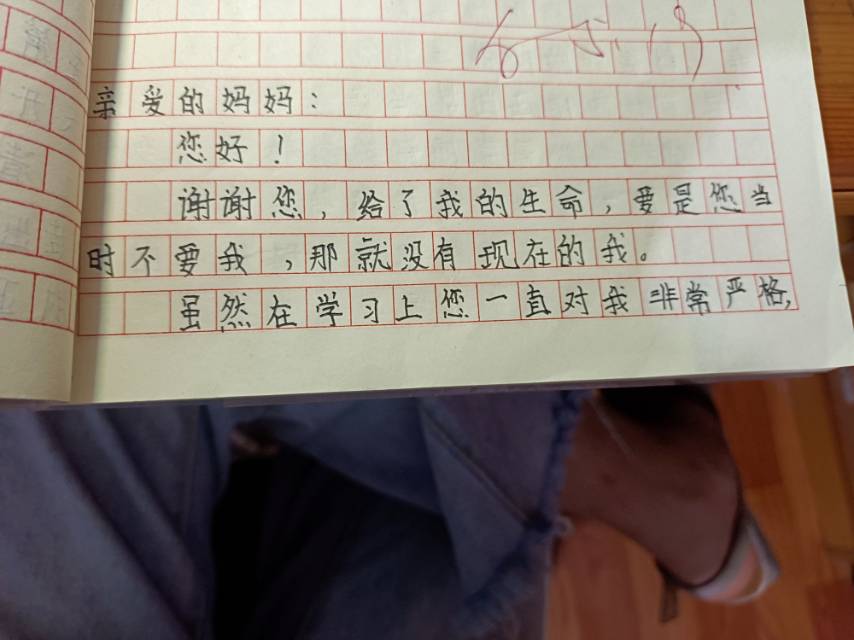 亲爱的妈妈：
您好！
谢谢您，给了我的生命，要是您当
时不要我，那就没有现在的我。
虽然在学习上您一直对我非常严格，